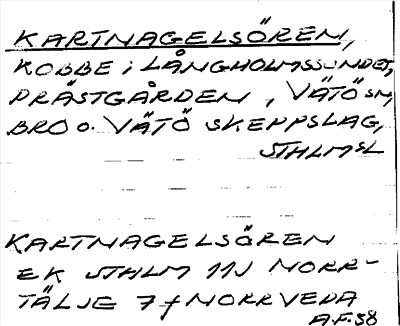 KARTNAGELSÖREN,
KOBBE i LÅNGHOLMSSUNDET,
PRÄSTGÅRDEN, VÄTÖ SN,
BRO O. VÄTÖ SKEPPSLAG,
STHLMSL
KARTNAGELSÖREN
EK STHLM 11J NORR-
TÄLJE 7 f NORRVEDA
A.F.58